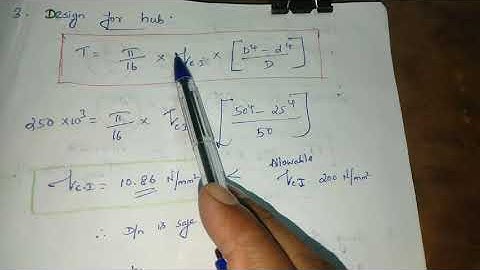 3. Design for hub.
T = π/16 × τC.I × [D⁴ - d⁴ / D]
250 × 10³ = π/16 × τC.I [50⁴ - 25⁴ / 50]
τC.I = 10.86 N/mm² < Allowable τC.I 200 N/mm²
∴ D/n is safe